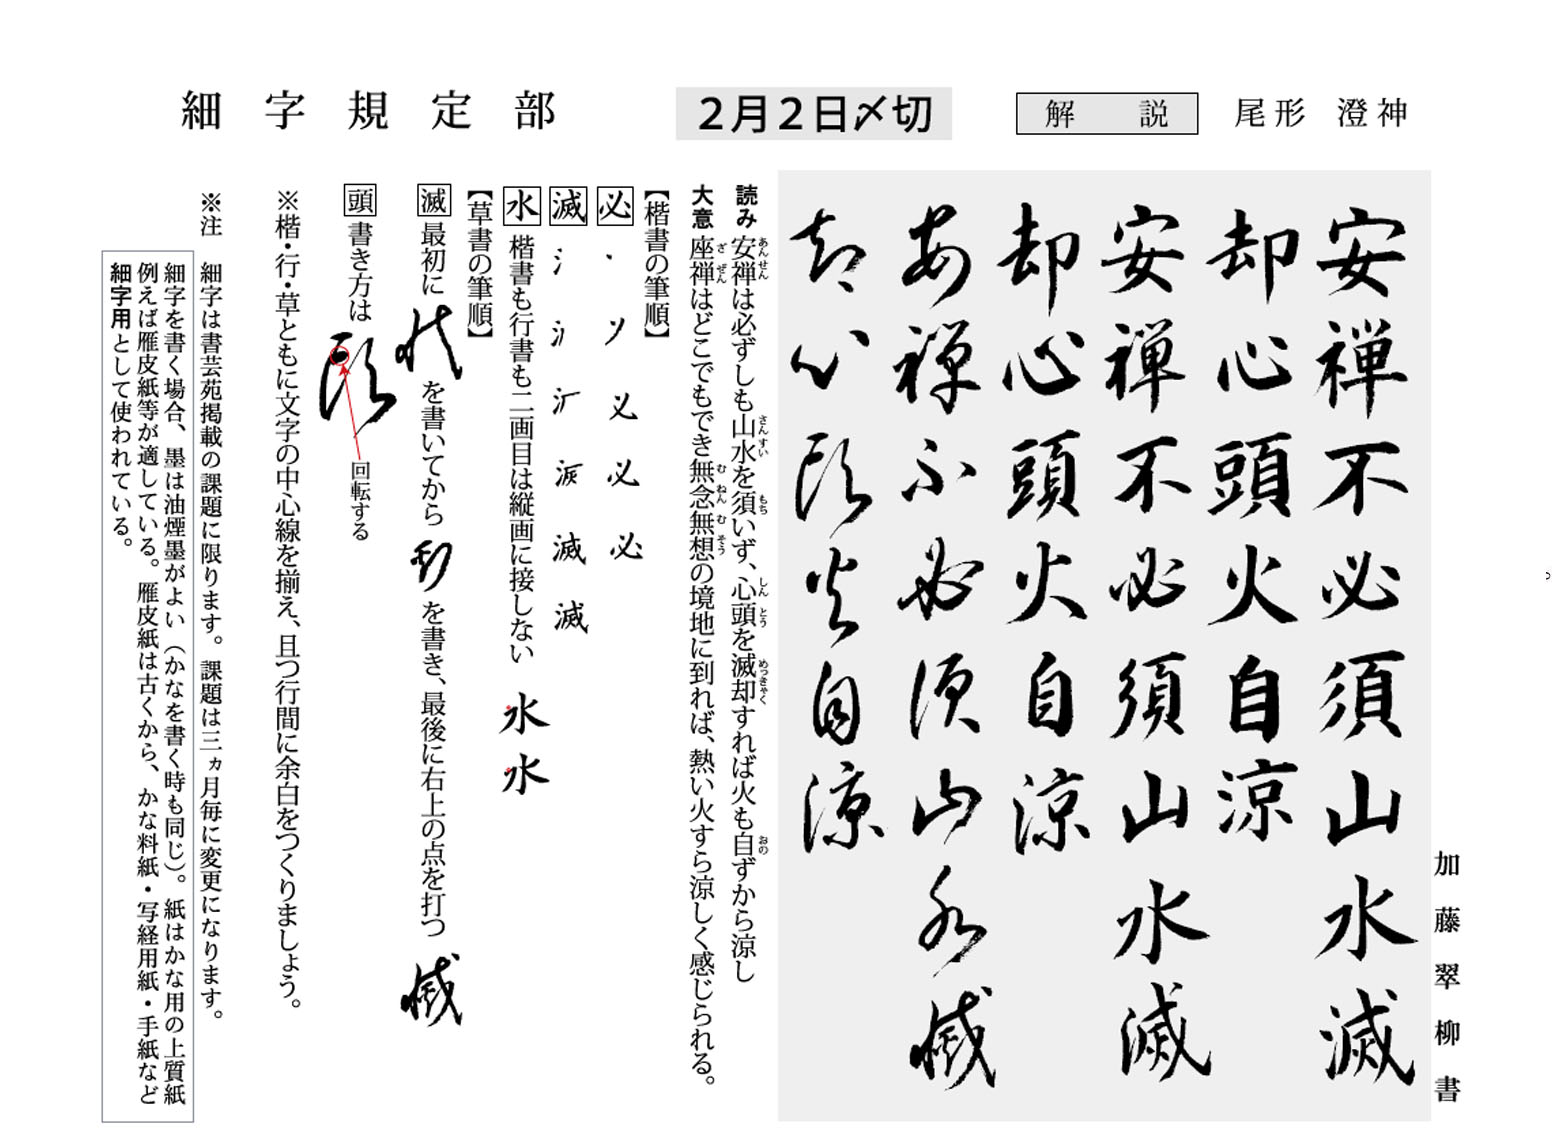 細字規定部
２月２日〆切
解説
尾形 澄神
加藤翠柳書
安禅不必須山水滅
却心頭火自涼
安禅不必須山水滅
却心頭火自涼
安禅不必須山水滅
却心頭火自涼
読み 安禅は必ずしも山水を須いず、心頭を滅却すれば火も自ずから涼し
あんせん さんすい もち しんとう めっきゃく おの
大意 座禅はどこでもでき無念無想の境地に到れば、熱い火すら涼しく感じられる。
ざぜん むねんむそう
【楷書の筆順】
必
滅
水 楷書も行書も二画目は縦画に接しない 水 水
【草書の筆順】
滅 最初に を書いてから を書き、最後に右上の点を打つ 滅
頭 書き方は 頭 回転する
※楷・行・草ともに文字の中心線を揃え、且つ行間に余白をつくりましょう。
※注 細字は書芸苑掲載の課題に限ります。課題は三ヵ月毎に変更になります。
細字を書く場合、墨は油煙墨がよい（かなを書く時も同じ）。紙はかな用の上質紙
例えば雁皮紙等が適している。雁皮紙は古くから、かな料紙・写経用紙・手紙など
細字用として使われている。